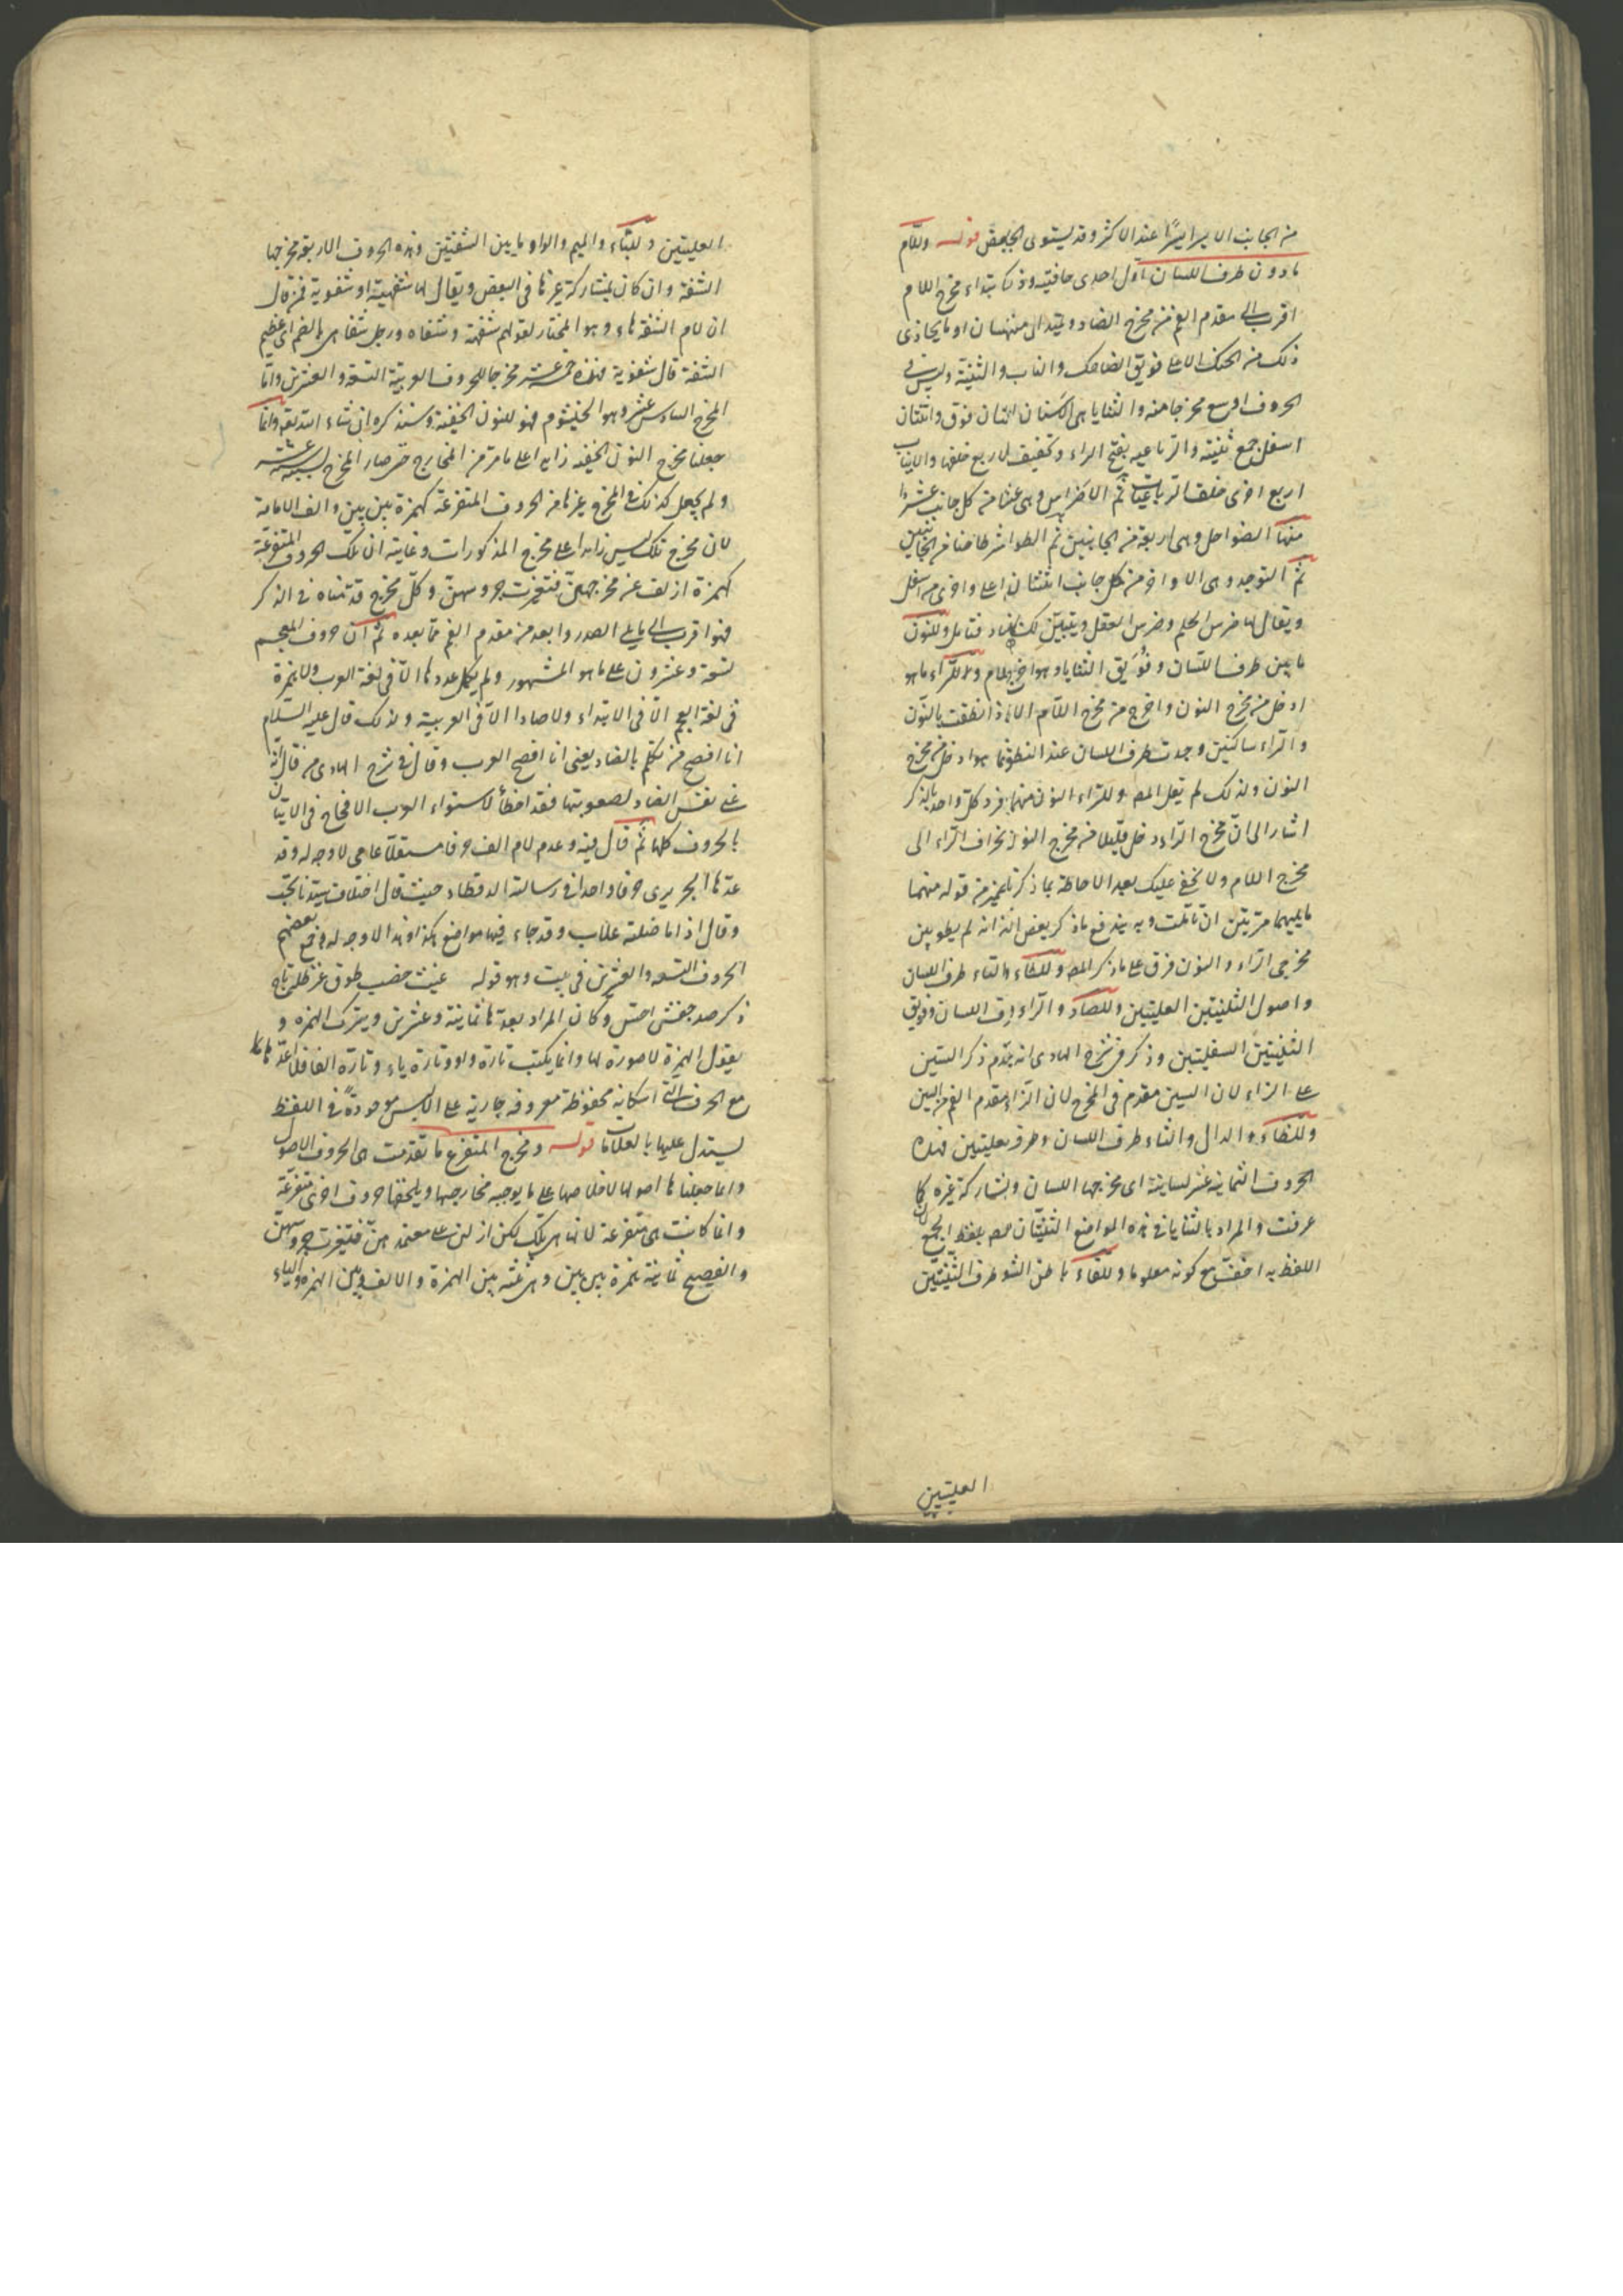 من الجانب الايسر ايسرا عند الاكثر وقد يستوى لبعض قوله وللام
مادون طرف اللسان اول احدى حافتيه وذلك ابتداء مخرج اللام
اقرب الى مقدم الفم من مخرج الضاد ويمتد الى منتهى اللسان او ما يحاذى
ذلك من الحنك الاعلى فويق الضاحك والناب والثنية وليس فى
الحروف اوسع مخرجا منه والثنايا هى الاسنان اثنتان فوق واثنتان
اسفل جمع ثنية والرباعية بفتح الراء وتخفيف الاربع خلفها والانياب
اربع اخرى خلف الرباعيات ثم الاضراس وهى عشر من كل جانب عشرا
منها الضواحك وهى اربعة من الجانبين ثم الطواحن اثنا عشر طاحنا من الجانبين
ثم النواجذ وهى الاواخر من كل جانب اثنتان اعلى واخرى من اسفل
ويقال لها ضرس الحلم وضرس العقل ويتبين لك الضاد فتأمل وللنون
ما بين طرف اللسان وفويق الثنايا وهو اخرج من اللام وللراء ما هو
ادخل من مخرج النون واخرج من مخرج اللام الا اذا نطقت بالنون
والراء ساكنين وجدت طرف اللسان عند النطق بها هو ادخل من مخرج
النون ولذلك لم يقل المص وللراء النون منهما فرد كل واحد بالذكر
اشار الى ان مخرج الراء ادخل قليلا من مخرج النون لانحراف الراء الى
مخرج اللام ولا يخفى عليك بعد الاحاطة بما ذكر تمييز من قوله منهما
ما يليهما مرتين ان تأملت وبه يندفع ما ذكر بعض انه لم يظهر بين
مخرجى الراء والنون فرق على ما ذكر المص وللطاء والتاء طرف اللسان
واصول الثنيتين العليتين وللصاد والزاء طرف اللسان وفويق
الثنيتين السفليتين وذكر فى شرح الهادى انه يقدم ذكر السين
على الزاء لان السين مقدم فى المخرج لان الزاء مقدم الفم من السين
وللظاء والذال والثاء طرف اللسان وطرف العليتين فهذه
الحروف الثمانية عشر لسانية اى مخرجها اللسان ويشاركه غيره كما
عرفت والمراد بالثنايا فى هذه المواضع الثنيتان بلفظ الجمع لان
اللفظ به اخف مع كونه معلوما وللفاء باطن الشفة وطرف الثنيتين
العليتين
العليتين وللباء والميم والواو ما بين الشفتين وهذه الحروف الاربعة مخرجها
الشفة وان كان يشاركه غيرها فى البعض ويقال لها شفهية او شفوية فمن قال
ان لام الشفة هاء وهو المختار لقولهم شفهة وشفاه ورجل شفاهى بالضم اى عظيم
الشفة قال شفوية فهذه خمسة عشر مخرجا للحروف العربية التسعة والعشرين واما
المخرج السادس عشر وهو الخيشوم فهو للنون الخفيفة وسنذكره ان شاء الله تعالى وانما
جعلنا مخرج النون الخفيفة زايدا على ما مر من المخارج حتى صار المخرج ستة عشر
ولم يجعل كذلك المخرج غيرها من الحروف المتفرعة كهمزة بين بين والف الامالة
لان مخرج تلك ليس زايدا على مخرج المذكورات وغايته ان تلك الحروف المتفرعة
كهمزة ازلفت عن مخرجهن فتغيرت جروسهن وكل مخرج قدمناه فى الذكر
فهو اقرب الى ما يلى الصدر وابعد من مقدم الفم مما بعده ثم ان حروف المعجم
تسعة وعشرون على ما هو المشهور ولم يكمل عددها الا فى لغة العرب ولا همزة
فى لغة العجم الا فى الابتداء ولا ضاد الا فى العربية ولذلك قال عليه السلام
انا افصح من تكلم بالضاد يعنى انا افصح العرب وقال فى شرح الهادى من قال انه
عنى نفس الضاد لصعوبتها فقد اخطأ لاستواء العرب الاقحاح فى الاتيان
بالحروف كلها ثم قال فيه وعدم لام الف حرفا مستقلا عامى لا وجه له وقد
عدها الحريرى حرفا واحدا فى رسالته الرقطاء حيث قال اخلاق سيدنا تحب
وقال اذا ما ضلته غلاب وقد جاء فيها مواضع هكذا وهذا لا وجه له وجمع بعضهم
الحروف التسعة والعشرين فى بيت وهو قوله غيث خصب طوق عز ظل تاج
ذكر صد جفش احش وكان المراد بعدها ثمانية وعشرين ويترك الهمزة و
يقول الهمزة لا صورة لها وانما يكتب تارة واو وتارة ياء وتارة الفا فلا اعدها
مع الحروف التى اشكالها محفوظة معروفة جارية على الالسن موجودة فى اللفظ
يستدل عليها بالعلامات قوله ومخرج المتفرع ما تقدمت هى الحروف الاصول
وانما جعلناها اصولا لاخلاصها على ما يوجبه مخارجها ويلحقها حروف اخرى متفرعة
وانما كانت هى متفرعة لانها هى تلك لكن ازلن عن معتمدهن فتغيرت جروسهن
والفصيح ثمانية همزة بين بين وهى ثلثة بين الهمزة والالف وبين الهمزة والياء